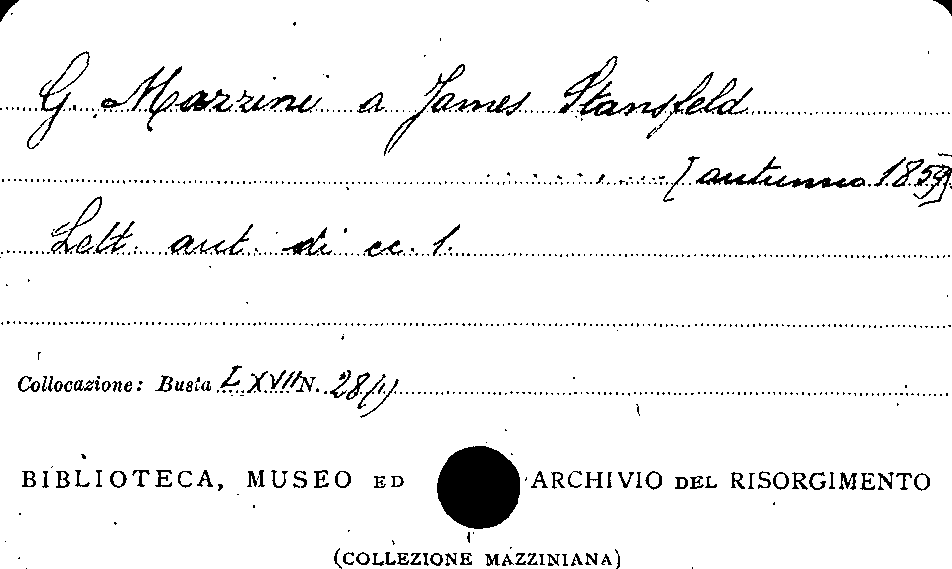 G. Mazzini a James Stansfeld
[autunno 1859]
Lett. aut. di cc. 1.
Collocazione: Busta LXVII N. 28(1)
BIBLIOTECA, MUSEO ED ARCHIVIO DEL RISORGIMENTO
(COLLEZIONE MAZZINIANA)